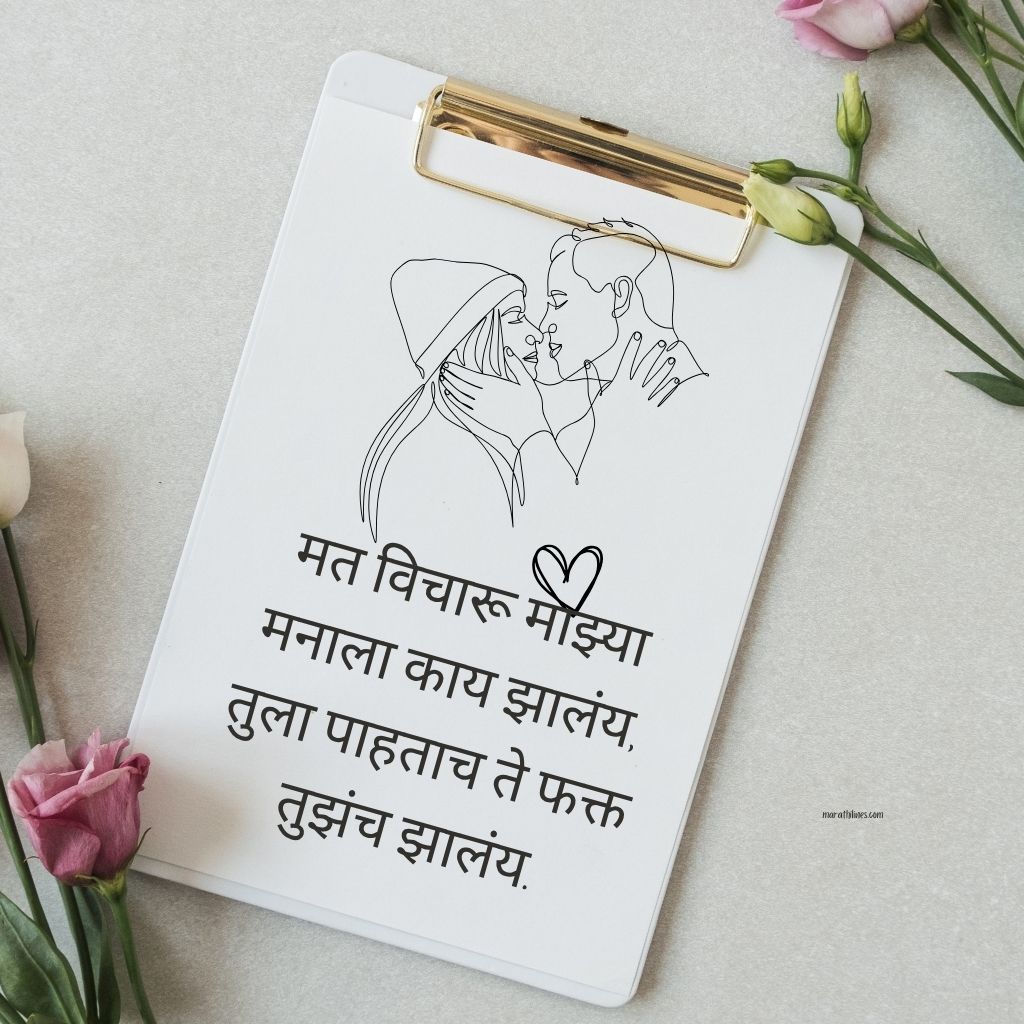 मत विचारू माझ्या
मनाला काय झालंय,
तुला पाहताच ते फक्त
तुझंच झालंय.
marathilines.com